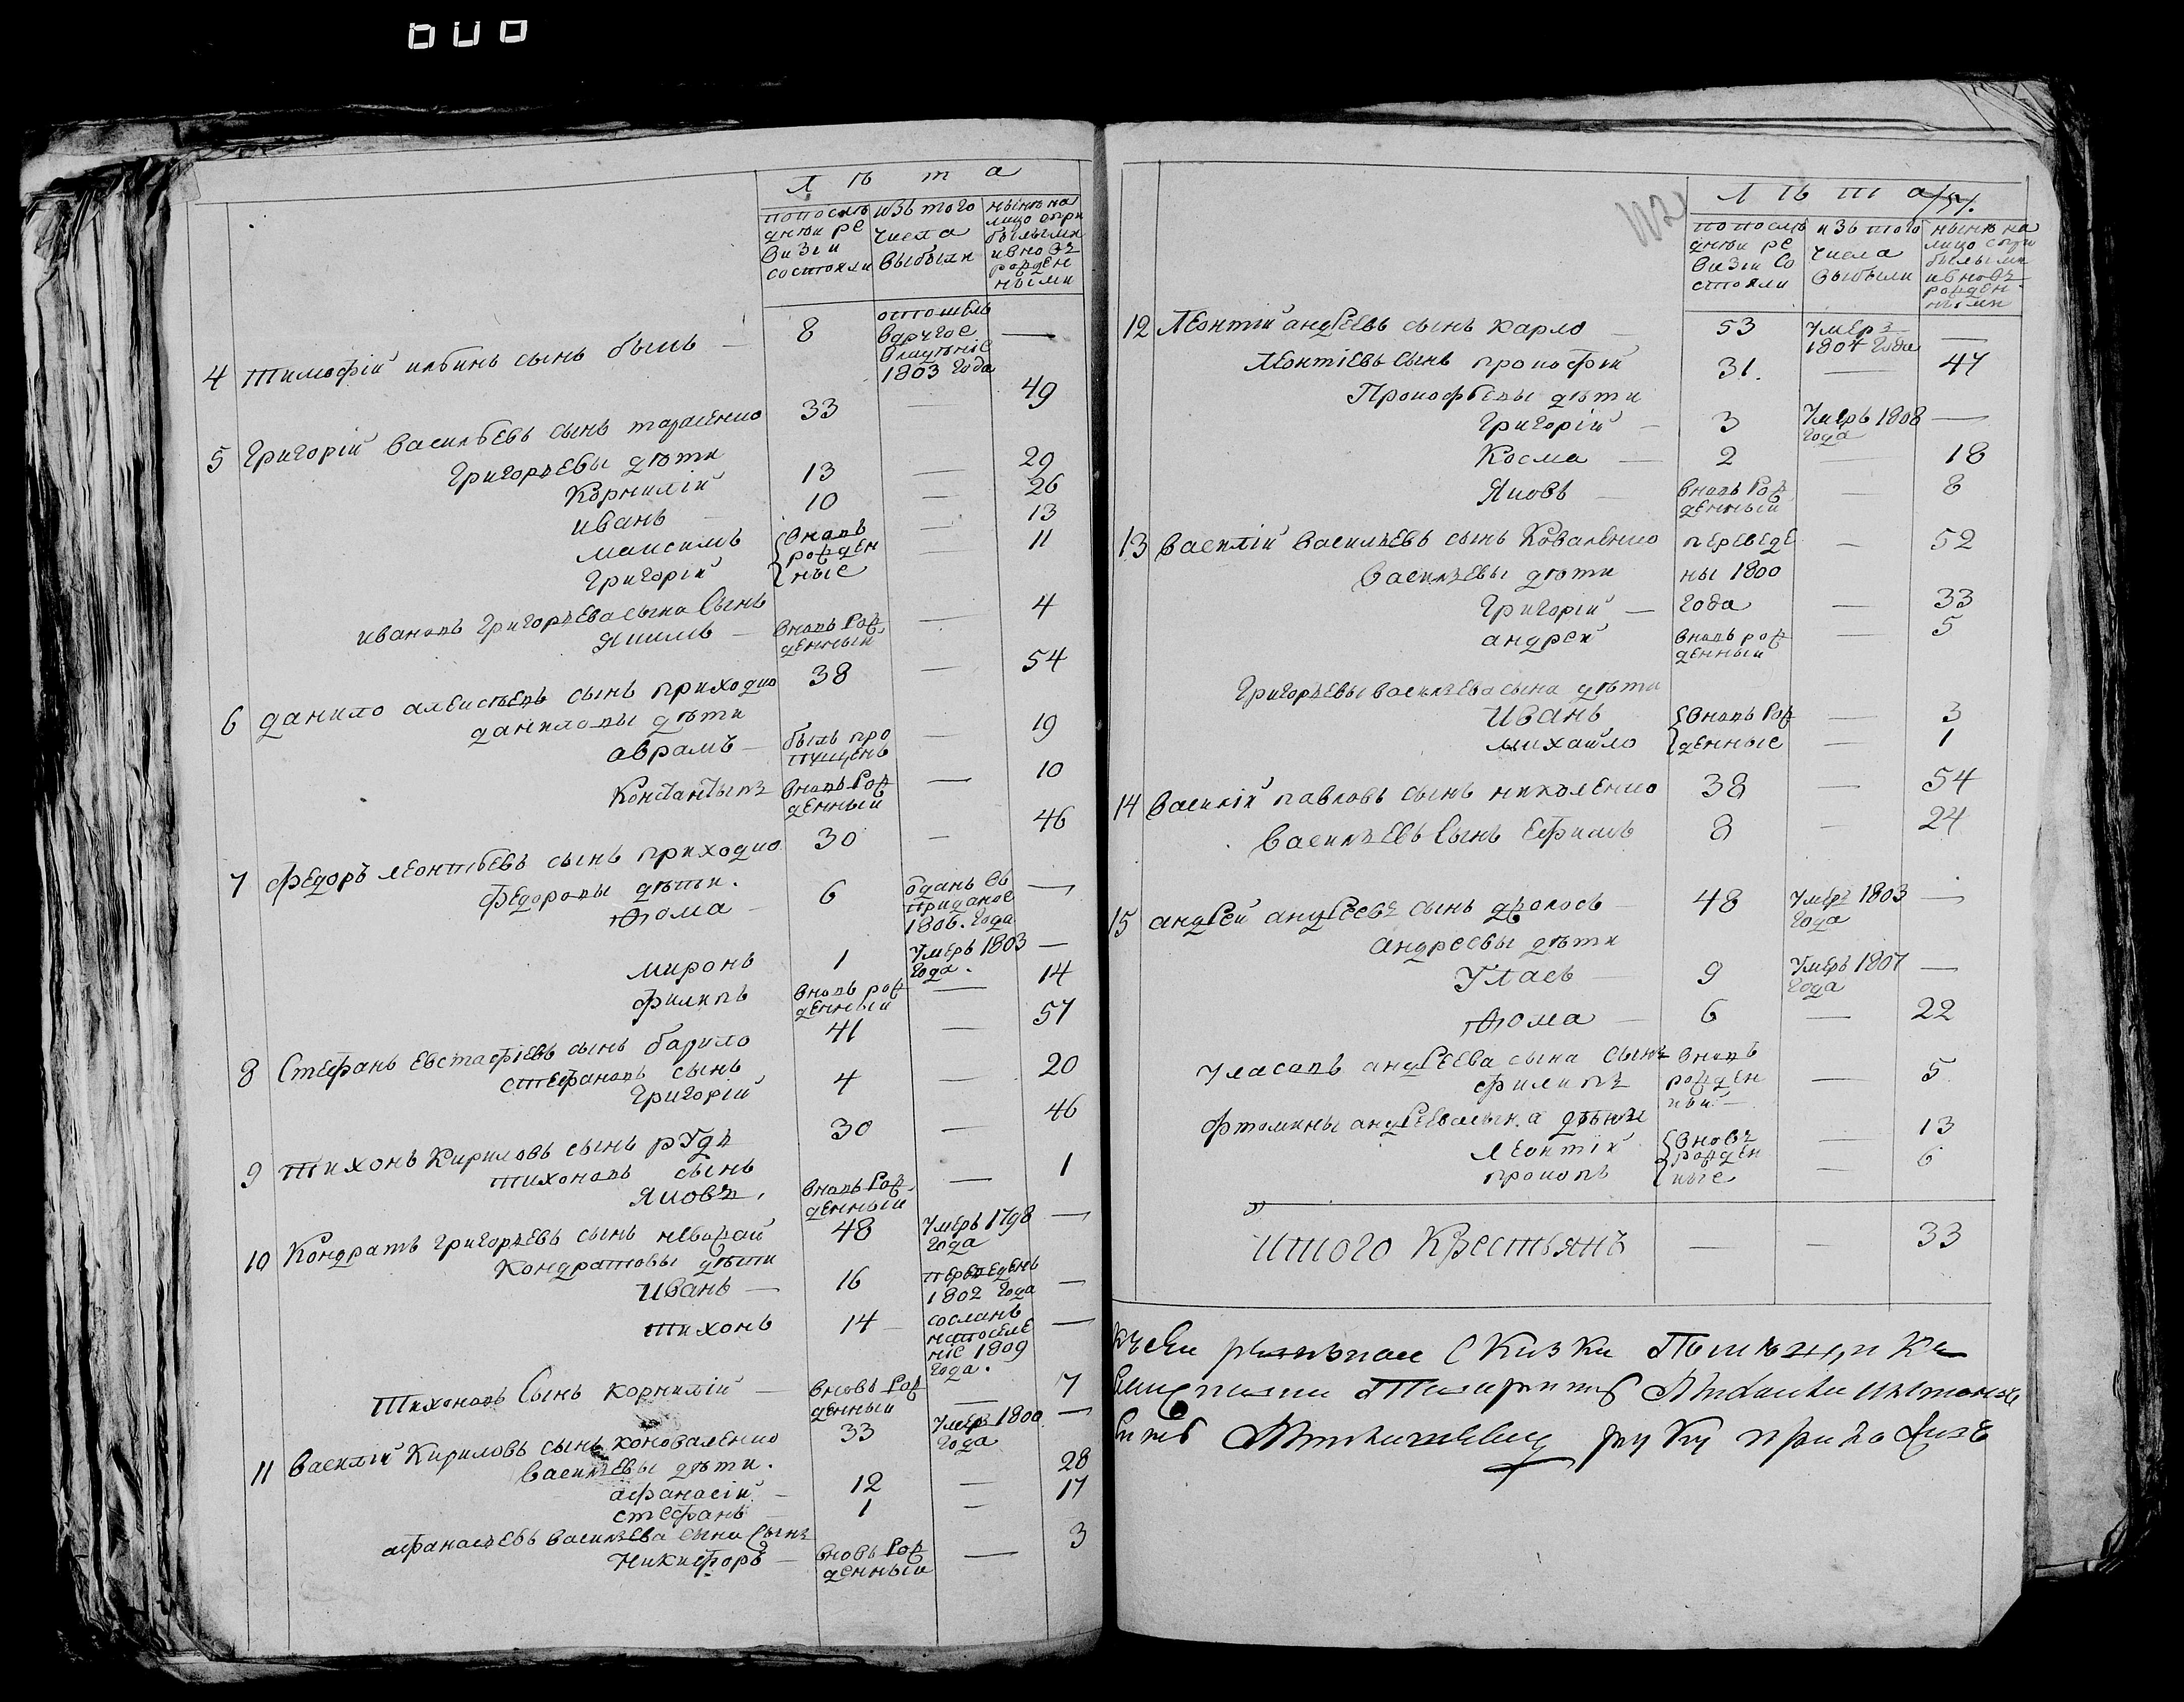 Л ѣ т а
попослѣ
днѣи ре
визіи
состояли
изъ того
числа
выбыли
нынѣ на
лицо спри
былыми
ивновь
рожден
ными
4 Тимофій ильинъ сынъ — 8 отошелъ —
вдругое
владѣніе
1803 года
5 Григорій васильевъ сынъ тарасенко 33 — 49
Григорьевы дѣти
Корнилій 13 — 29
иванъ — 10 — 26
максимъ вновь — 13
Григорій рожден 11
ные
ивановъ Григорьева сына сынъ
Якимъ — вновь рож — 4
денный
6 данило алексѣевъ сынъ приходко 38 — 54
даниловы дѣти
аврамъ — былъ про — 19
пущенъ
Константынъ вновь рож — 10
денный
7 федоръ леонтьевъ сынъ приходко 30 — 46
федоровы дѣти.
фома — 6 одань въ —
приданое
1806. года
миронъ 1 умеръ 1803 —
года.
филипъ вновь рож — 14
денный
8 Стефанъ евстафіевъ сынъ барило 41 — 57
стефановъ сынъ
Григорій 4 — 20
9 Тихонъ Кириловъ сынъ рудь 30 — 46
тихоновъ сынъ
Яковъ, вновь рож — 1
денный
10 Кондратъ григорьевъ сынъ 48 умеръ 1798 —
года
Кондратовы дѣти
Иванъ — 16 переведенъ —
1802 года
тихонъ 14 — сосланъ —
напоселе
ніе 1809
года.
Тихоновъ сынъ корнилій — вновь рож — 7
денный
11 Василій Кириловъ сынъ коноваленко 33 умеръ 1800 —
года
васильевы дѣти.
афанасій — 12 — 28
стефанъ — 1 — 17
афанасьевъ васильева сына сынъ
Никифоръ — вновь рож — 3
денный
Л ѣ т а
попослѣ
днѣи ре
визіи со
стояли
изъ того
числа
выбыли
нынѣ на
лицо спри
былыми
ивновь
рожден
ными
12 Леонтій андреевъ сынъ карло — 53 умеръ —
1804 года
Леонтіевъ сынъ прокофій 31. — 47
Прокофьевы дѣти
Григорій — 3 умеръ 1808 —
года
Косма — 2 — 18
Яковъ — вновь рож — 8
денный
13 василій васильевъ сынъ Коваленко переведе — 52
васильевы дѣти ны 1800
григорій — года — 33
андрей вновь рож — 5
денный
Григорьевы васильева сына дѣти
Иванъ вновь рож — 3
михайло денные — 1
14 василій павловъ сынъ николенко 38 — 54
васильевъ сынъ ефимъ 8 — 24
15 андрей андреевъ сынъ — 48 умеръ 1803 —
года
андреевы дѣти
Улась — 9 умеръ 1807 —
года
фома — 6 — 22
Уласовъ андреева сына сынъ вновь
филипъ рожден — 5
ный —
фомины андреева сына дѣти
Леонтій вновь — 13
рожден
прокопъ ные — 6
итого Крестьянъ — — 33
рукү приложилъ